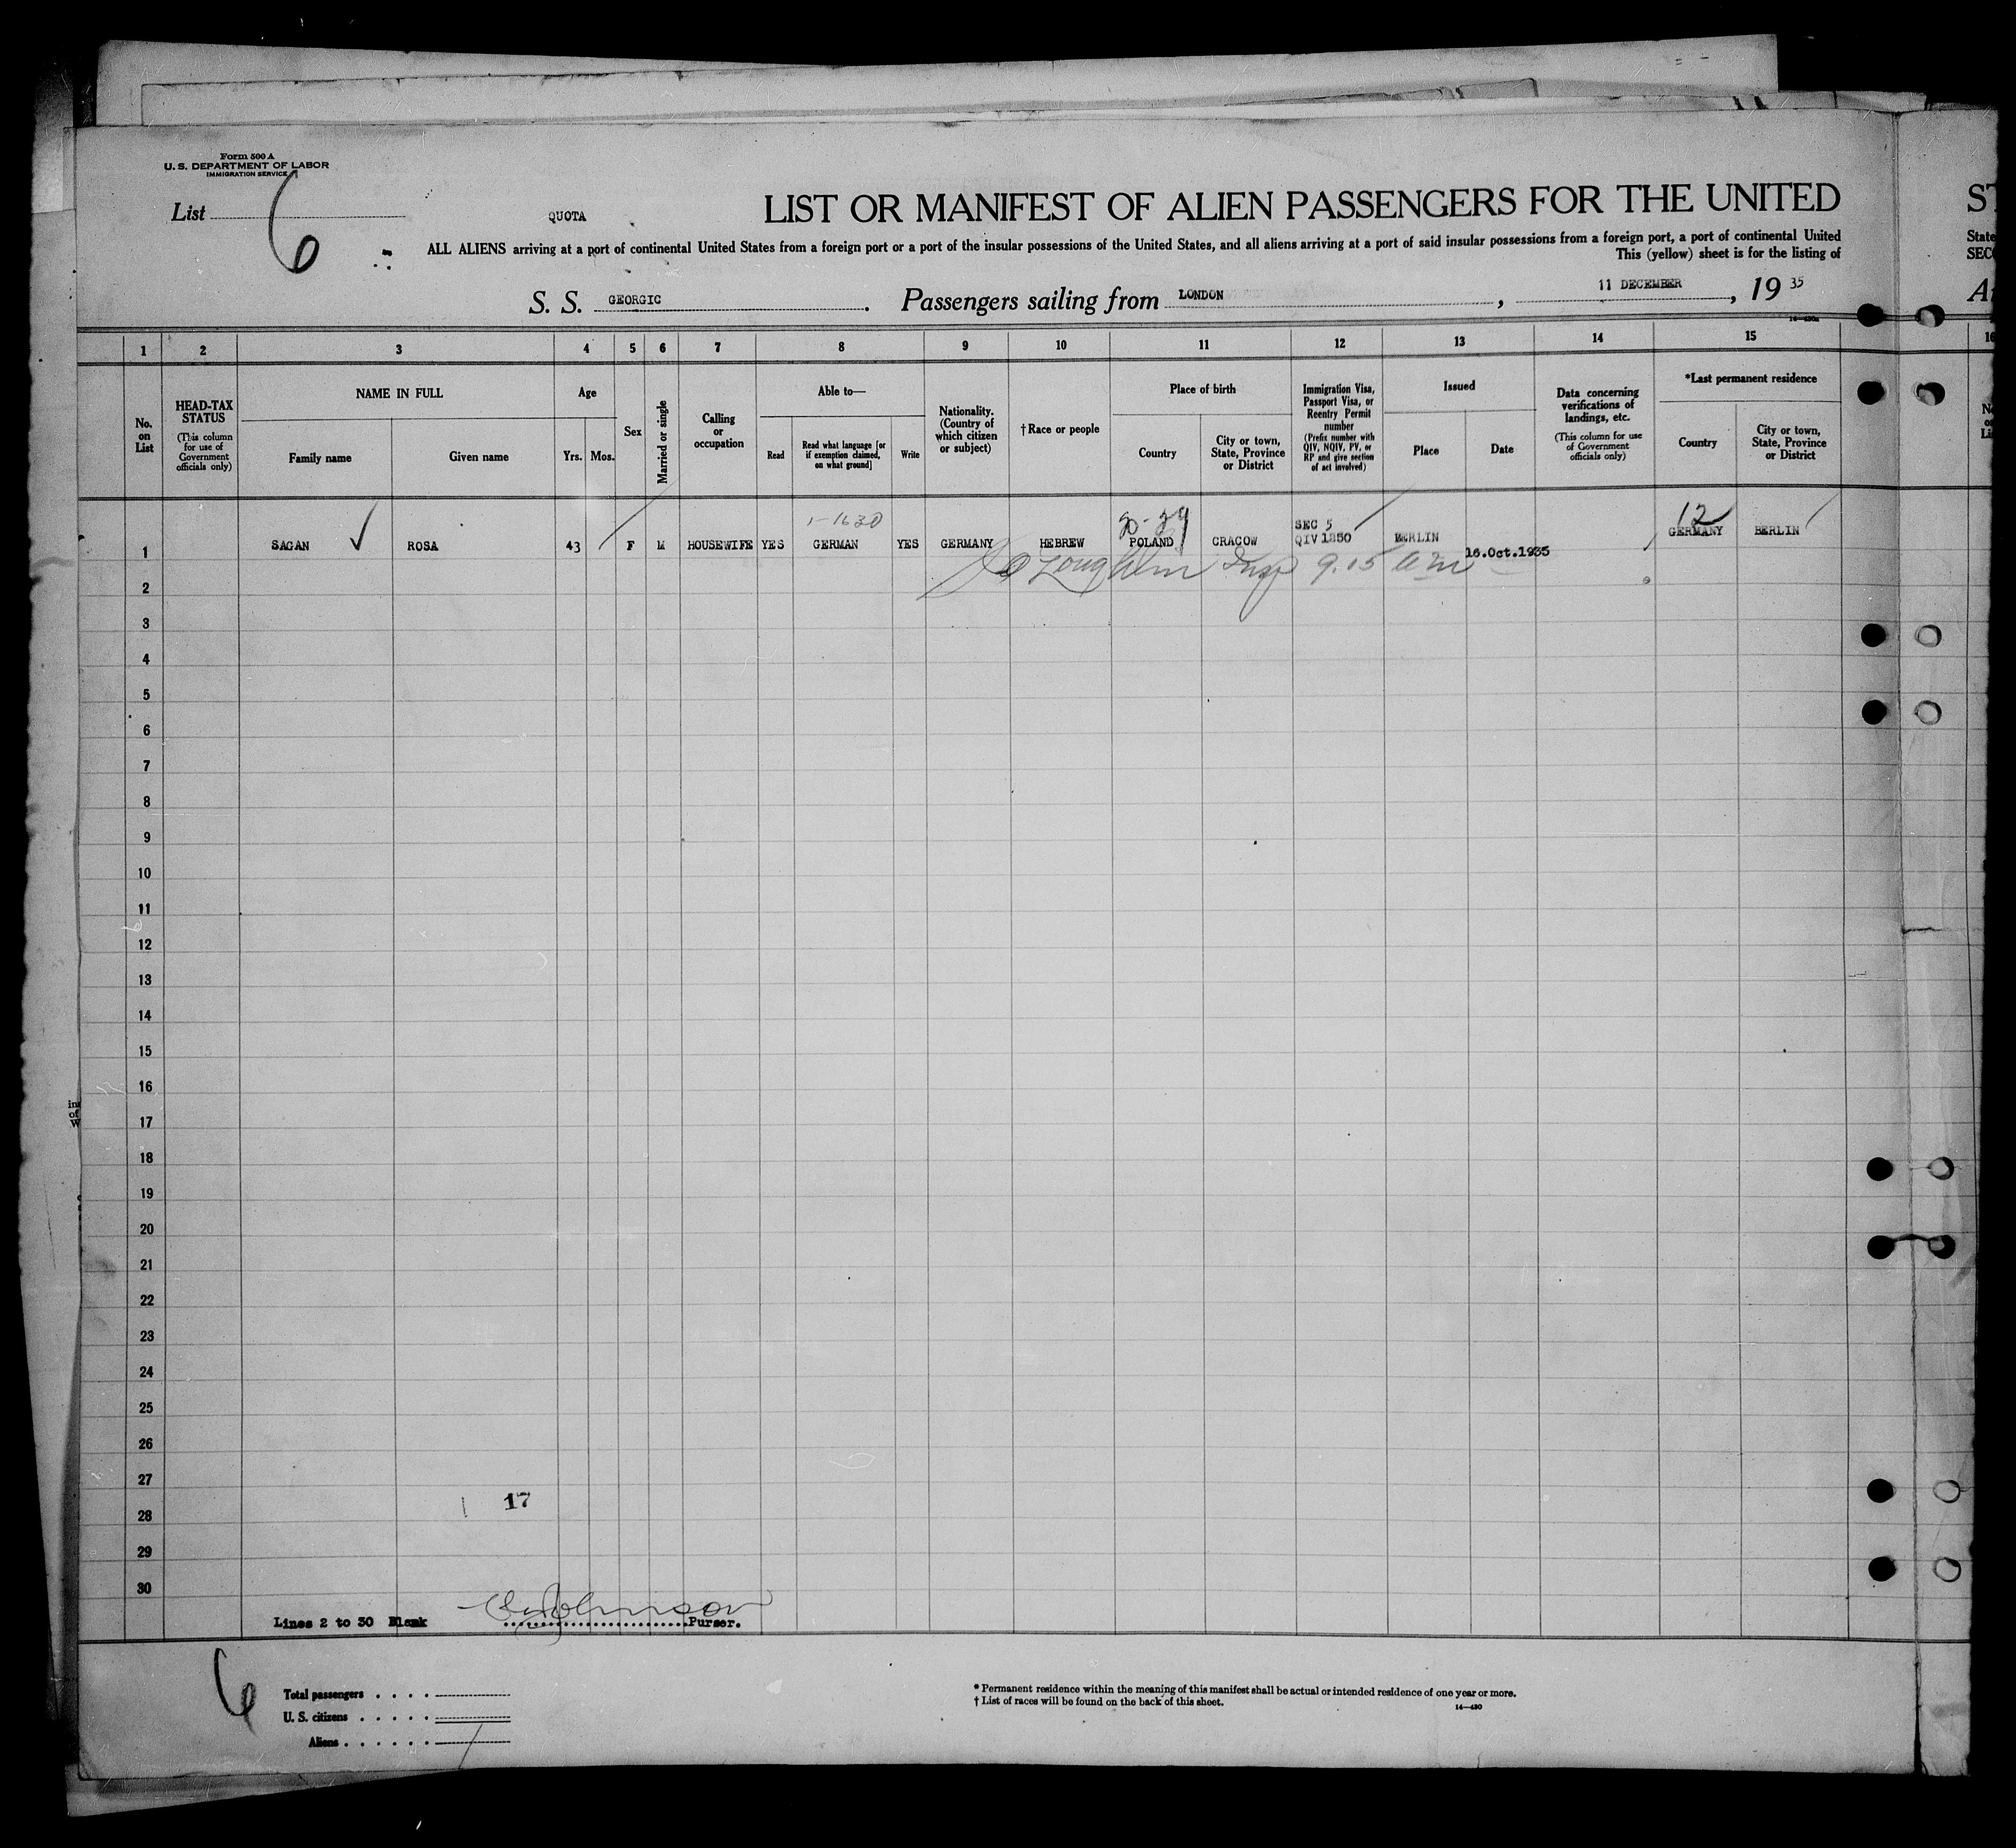 Form 500 A
U. S. DEPARTMENT OF LABOR
IMMIGRATION SERVICE
List 6
QUOTA
LIST OR MANIFEST OF ALIEN PASSENGERS FOR THE UNITED
ST
ALL ALIENS arriving at a port of continental United States from a foreign port or a port of the insular possessions of the United States, and all aliens arriving at a port of said insular possessions from a foreign port, a port of continental United
State
This (yellow) sheet is for the listing of
SEC
S. S. GEORGIC. Passengers sailing from LONDON, 11 DECEMBER, 19 35
1 2 3 4 5 6 7 8 9 10 11 12 13 14 15 16
No. on List
HEAD-TAX STATUS
(This column for use of Government officials only)
NAME IN FULL
Family name
Given name
Age
Yrs. Mos.
Sex
Married or single
Calling or occupation
Able to—
Read
Read what language [or if exemption claimed, on what ground]
Write
Nationality. (Country of which citizen or subject)
†Race or people
Place of birth
Country
City or town, State, Province or District
Immigration Visa, Passport Visa, or Reentry Permit number
(Prefix number with QIV, NQIV, PV, or RP and give section of act involved)
Issued
Place
Date
Data concerning verifications of landings, etc.
(This column for use of Government officials only)
*Last permanent residence
Country
City or town, State, Province or District
1-1630
SEC 5
12
1 SAGAN ROSA 43 F M HOUSEWIFE YES GERMAN YES GERMANY HEBREW POLAND CRACOW QIV 1250 BERLIN 16.Oct.1935 GERMANY BERLIN
Insp 9.15 am
2
3
4
5
6
7
8
9
10
11
12
13
14
15
16
17
18
19
20
21
22
23
24
25
26
27
17
28
29
30
Johnson
Lines 2 to 30 Blank
Purser.
6
Total passengers
U. S. citizens
Aliens 1
* Permanent residence within the meaning of this manifest shall be actual or intended residence of one year or more.
† List of races will be found on the back of this sheet.
14—430